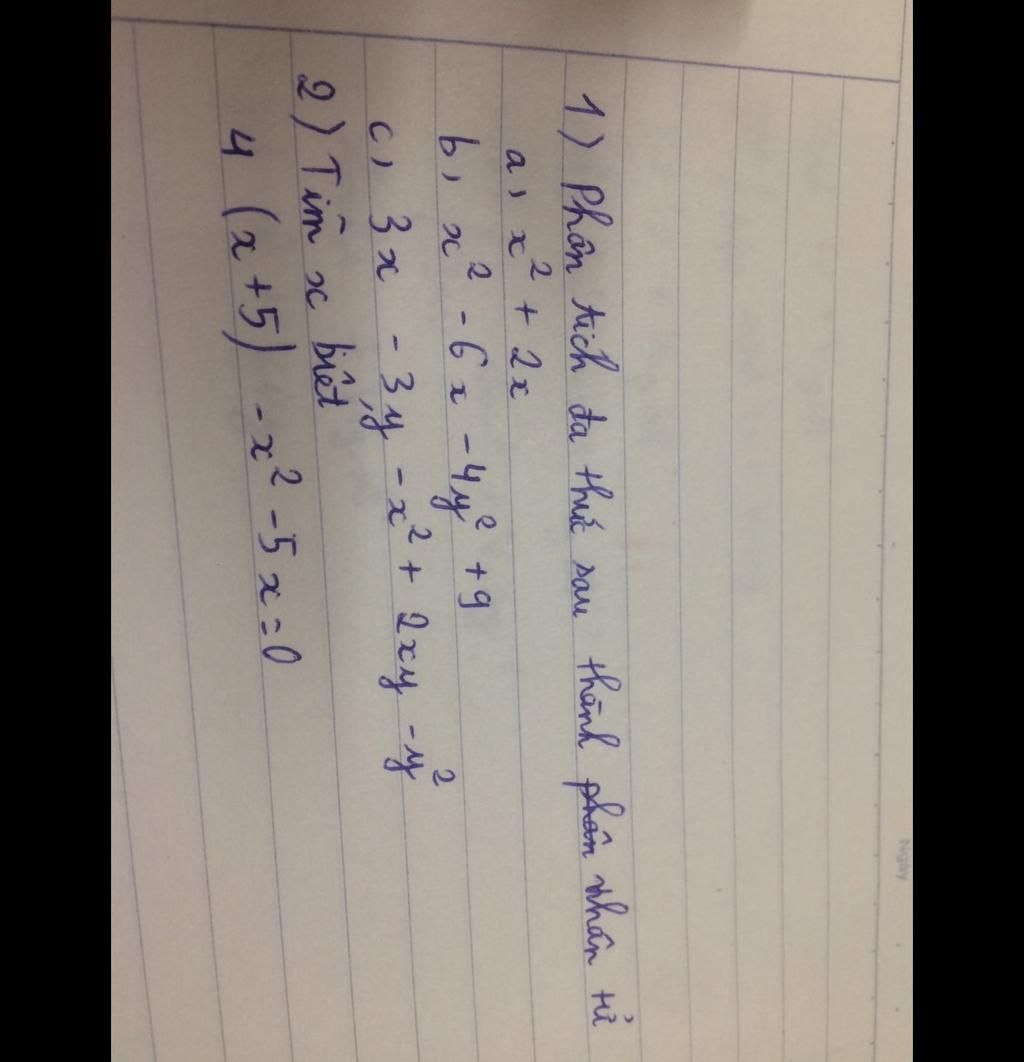 1) Phân tích đa thức sau thành phân nhân tử
a, x² + 2x
b, x² - 6x - 4y² + 9
c, 3x - 3y - x² + 2xy - y²
2) Tìm x biết
4 (x + 5) - x² - 5x = 0
Ngày